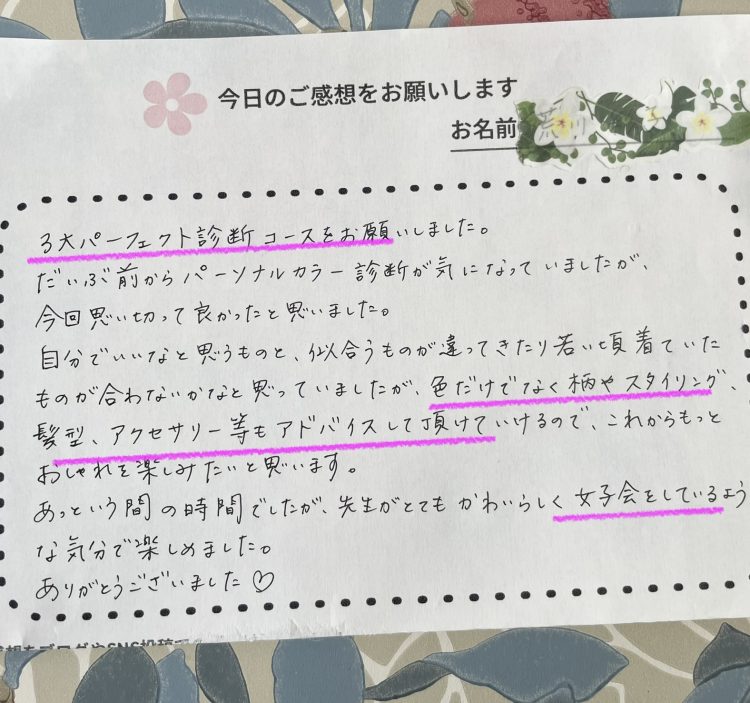 今日のご感想をお願いします
お名前
3大パーフェクト診断コースをお願いしました。
だいぶ前からパーソナルカラー診断が気になっていましたが、
今回思い切って良かったと思いました。
自分でいいなと思うものと、似合うものが違ってきたり若い頃着ていた
ものが合わないかなと思っていましたが、色だけでなく柄やスタイリング、
髪型、アクセサリー等もアドバイスして頂けていけるので、これからもっと
おしゃれを楽しみたいと思います。
あっという間の時間でしたが、先生がとてもかわいらしく女子会をしているよう
な気分で楽しめました。
ありがとうございました♡